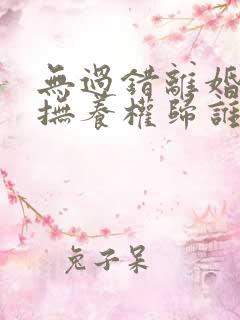 無過錯離婚
撫養權歸誰
兔子呆